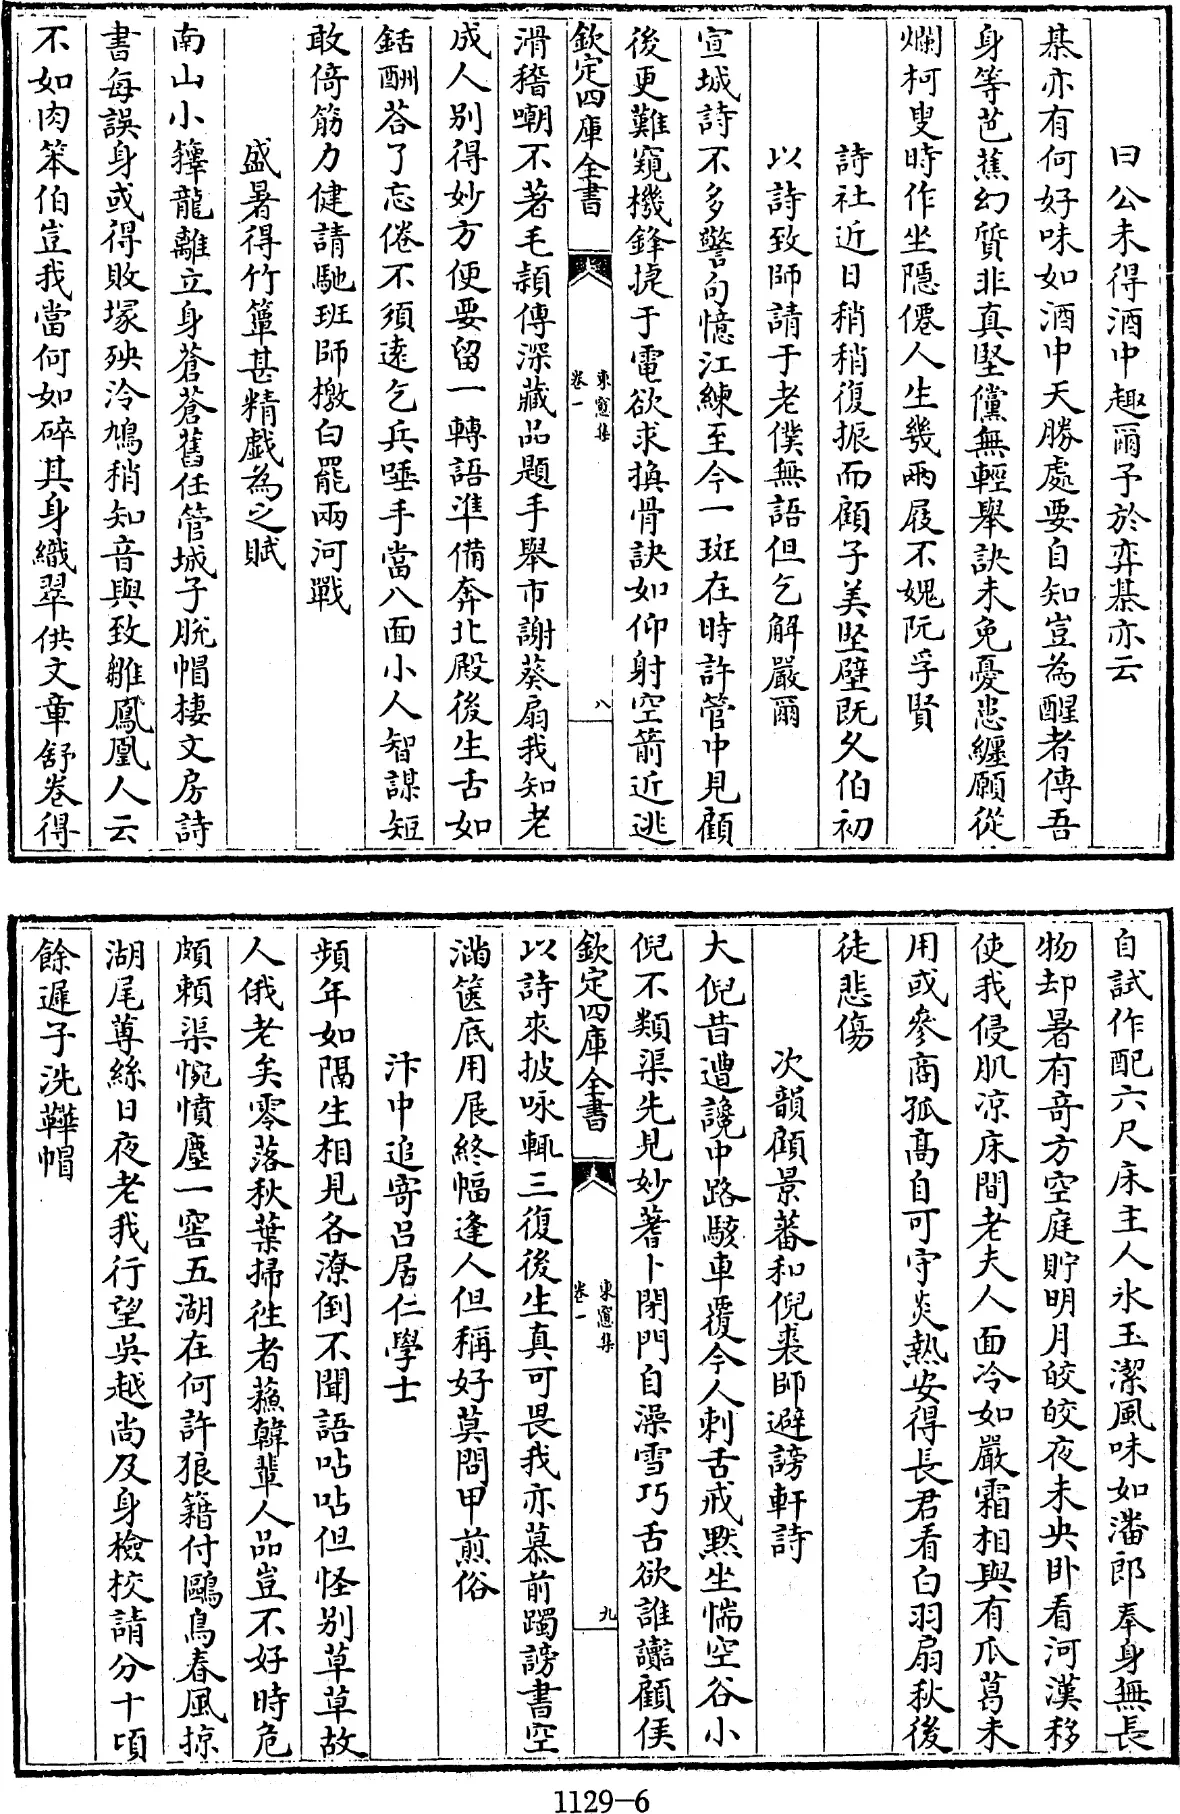 曰公未得酒中趣爾予於弈棊亦云
棊亦有何好味如酒中天勝處要自知豈為醒者傳吾
身等芭蕉幻質非真堅儻無輕舉訣未免憂患纏願從
爛柯叟時作坐隱僊人生幾兩屐不媿阮孚賢
詩社近日稍稍復振而顧子美堅壁既久伯初
以詩致師請于老僕無語但乞解嚴爾
宣城詩不多警句憶江練至今一斑在時許管中見顧
後更難窺機鋒捷于電欲求換骨訣如仰射空箭近逃
欽定四庫全書
東窻集
卷一
八
滑稽嘲不著毛穎傳深藏品題手舉市謝葵扇我知老
成人別得妙方便要留一轉語準備奔北殿後生舌如
銛酬荅了忘倦不須遠乞兵唾手當八面小人智謀短
敢倚筋力健請馳班師檄白罷兩河戰
盛暑得竹簟甚精戲為之賦
南山小籜龍離立身蒼蒼舊任管城子脫帽棲文房詩
書每誤身或得敗塚殃泠鳩稍知音與致雛鳳凰人云
不如肉笨伯豈我當何如碎其身織翠供文章舒卷得
自試作配六尺床主人氷玉潔風味如潘郎奉身無長
物却暑有奇方空庭貯明月皎皎夜未央卧看河漢移
使我侵肌凉床間老夫人面冷如嚴霜相與有瓜葛未
用或參商孤高自可守炎熱安得長君看白羽扇秋後
徒悲傷
次韻顧景蕃和倪裘師避謗軒詩
大倪昔遭讒中路駭車覆今人刺舌戒默坐惴空谷小
倪不類渠先見妙蓍卜閉門自澡雪巧舌欲誰讟顧侯
欽定四庫全書
東窻集
卷一
九
以詩來披咏輒三復後生真可畏我亦慕前躅謗書空
滿篋底用展終幅逢人但稱好莫問甲煎俗
汴中追寄呂居仁學士
頻年如隔生相見各潦倒不聞語呫呫但怪別草草故
人俄老矣零落秋葉掃徃者蘓韓輩人品豈不好時危
頗賴渠惋憤塵一窖五湖在何許狼籍付鷗鳥春風掠
湖尾蓴絲日夜老我行望吳越尚及身檢校請分十頃
餘遲子洗鞾帽
1129-6